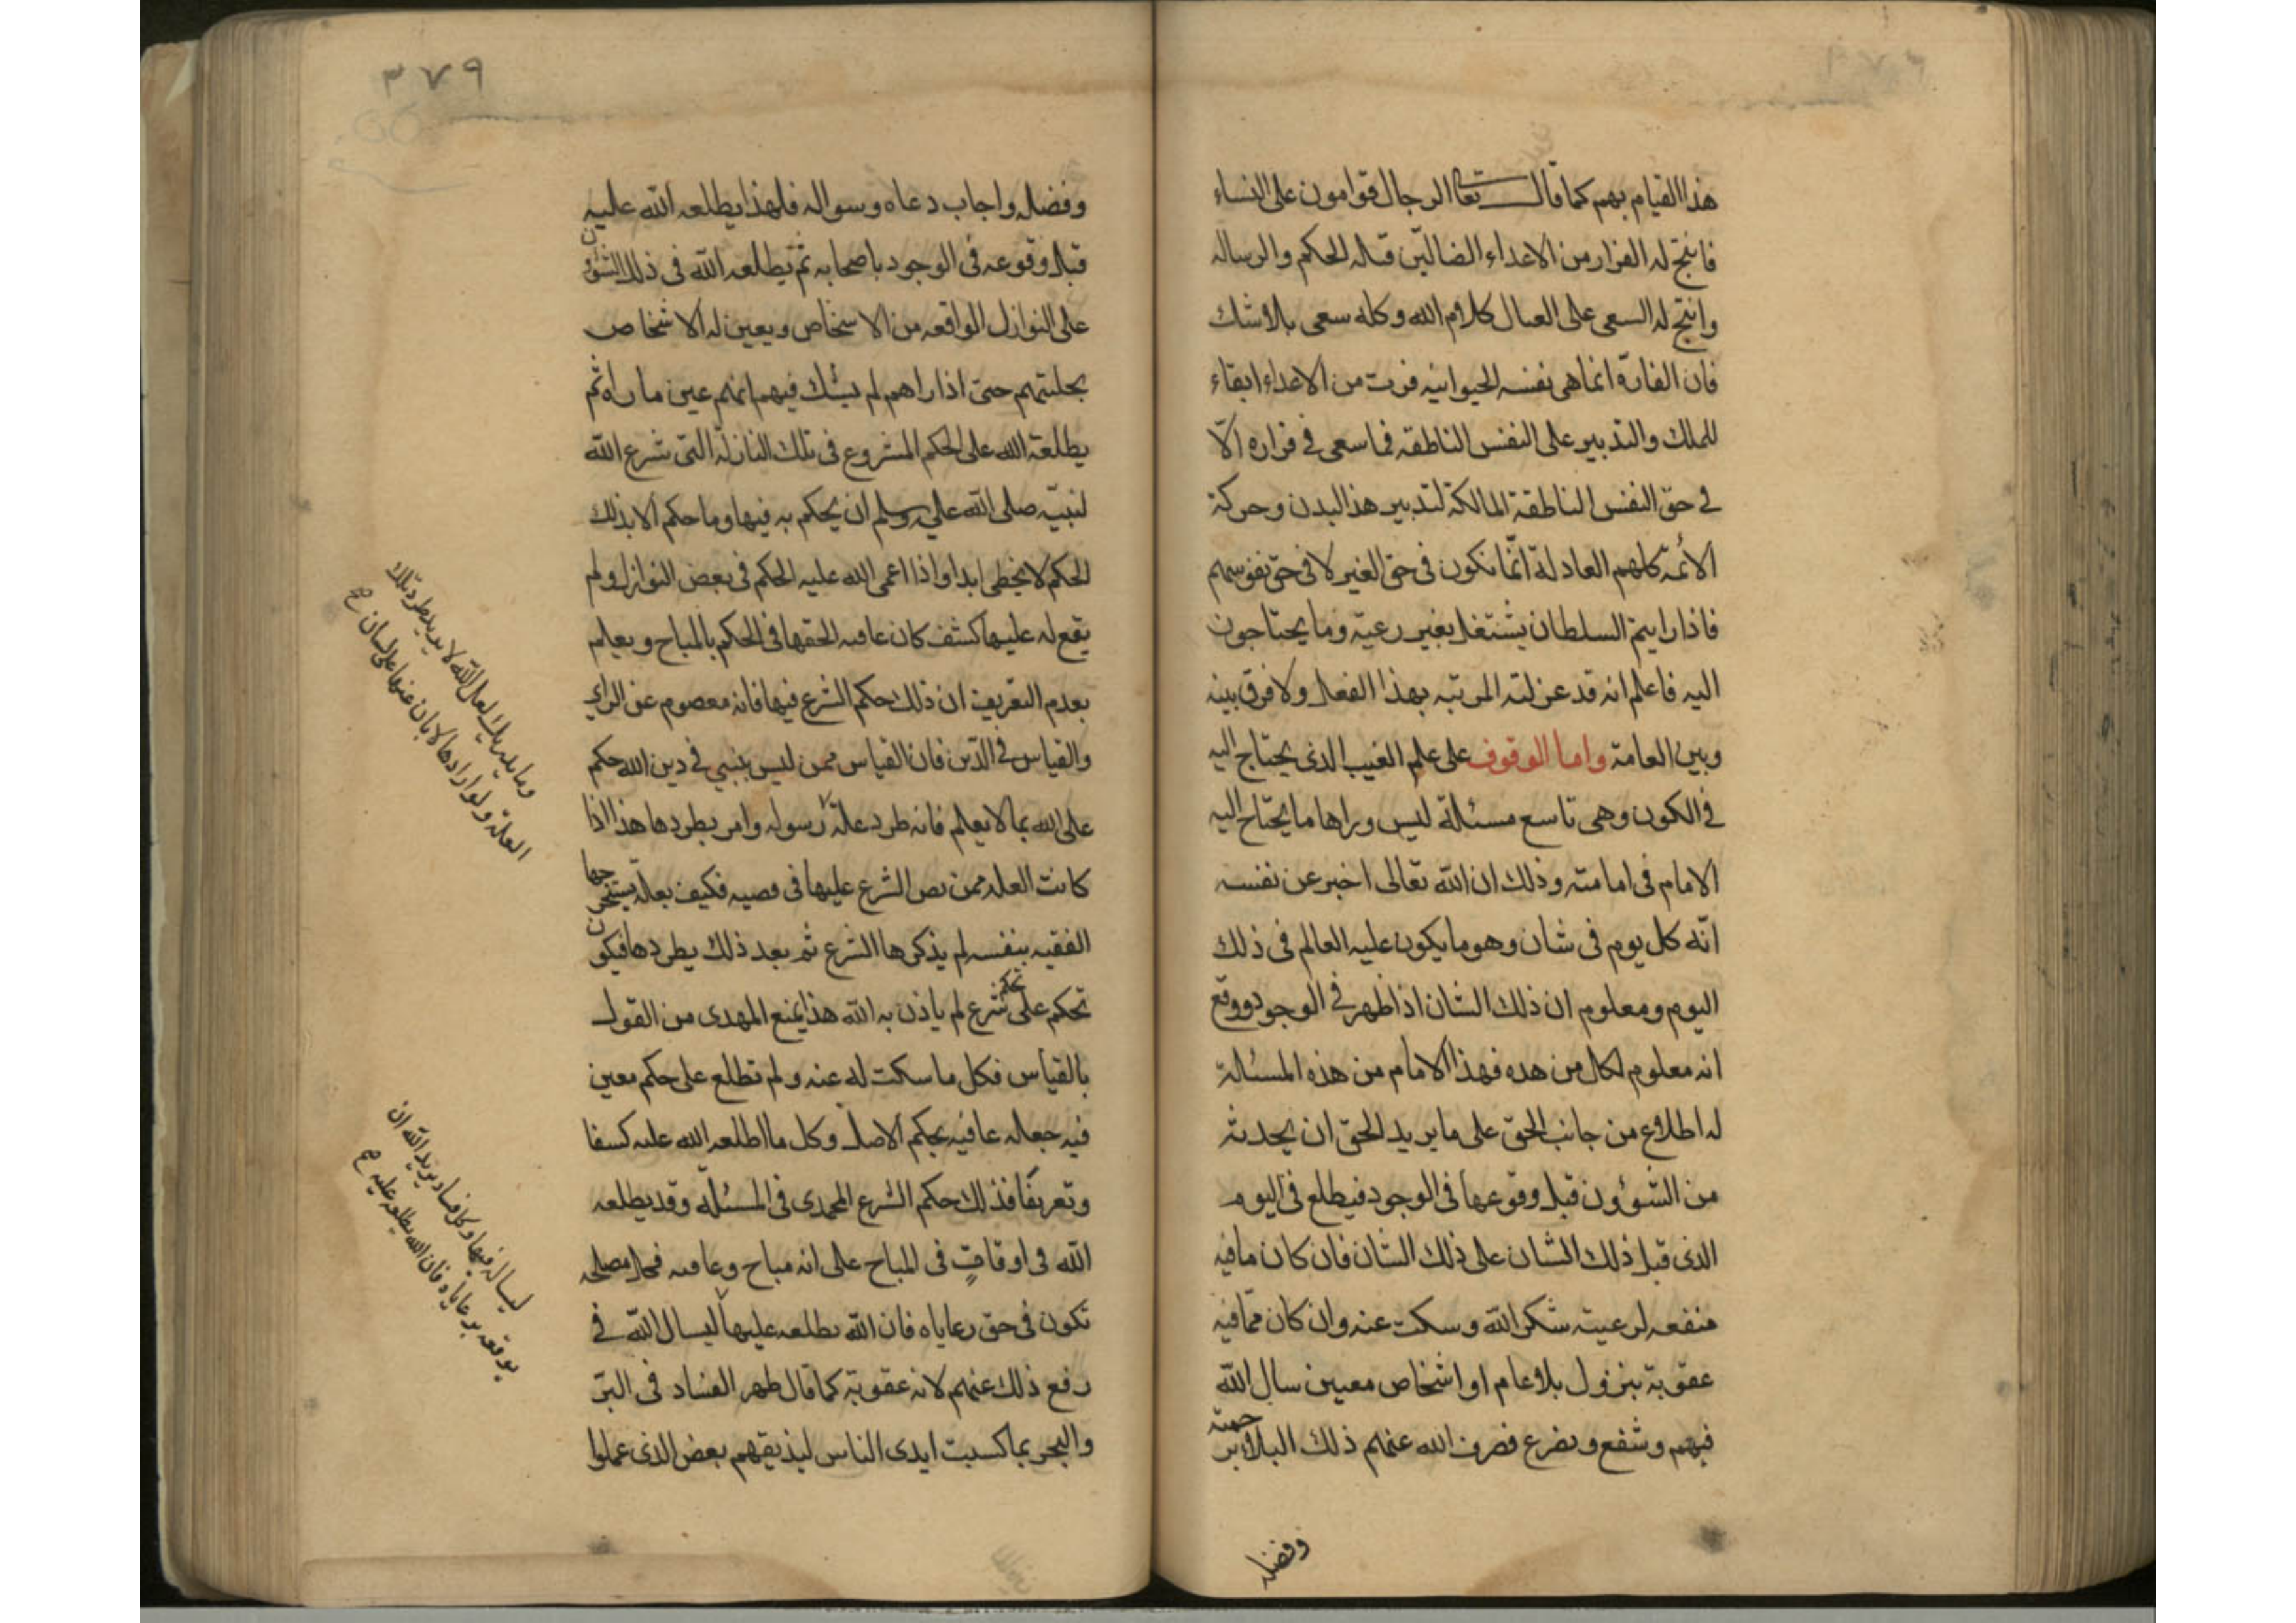 هذا القيام بهم كما قال تعا الرجال قوامون على النساء
فانتج له الفرار من الاعداء الضالين قتله الحكم والرساله
وانتج له السعى على العيال كلام الله وكله سعى بلا شك
فان الفارة انما هى نفسه الحيوانيه فرت من الاعداء ابقاء
للملك والتدبير على النفس الناطقه فما سعى فى فراره الا
فى حق النفس الناطقة المالكة لتدبير هذا البدن وحركة
الائمة كلهم العادلة انما تكون فى حق الغير لا فى حق نفوسهم
فاذا رايتم السلطان يشتغل بغير رعيته وما يحتاجون
اليه فاعلم انه قد عزلته المرتبه بهذا الفعل ولا فرق بينه
وبين العامة واما الوقوف على علم الغيب الذى يحتاج اليه
فى الكون وهى تاسع مسئلة ليس وراها ما يحتاج اليه
الامام فى امامته وذلك ان الله تعالى اخبر عن نفسه
انه كل يوم فى شان وهو ما يكون عليه العالم فى ذلك
اليوم ومعلوم ان ذلك الشان اذا ظهر فى الوجود ووقع
انه معلوم لكل من هده فهذا الامام من هذه المسئلة
له اطلاع من جانب الحق على ما يريد الحق ان يحدثه
من الشؤون قبل وقوعها فى الوجود فيطلع فى اليوم
الذى قبل ذلك الشان على ذلك الشان فان كان مافيه
منفعه لرعيته شكر الله وسكت عنه وان كان مما فيه
عقوبة بنزول بلا عام او اشخاص معيين سال الله
فيهم وشفع وتضرع فصرف الله عنهم ذلك البلا برحمته
وفضله
٣٧٩
وفضله واجاب دعاه وسواله فلهذا يطلعه الله عليه
قبل وقوعه فى الوجود باصحابه ثم يطلعه الله فى ذلك الشؤون
على النوازل الواقعه من الاشخاص ويعين له الاشخاص
بحليتهم حتى اذا راهم لم يشك فيهم انهم عين ما راه ثم
يطلعه الله على الحكم المشروع فى تلك النازلة التى شرع الله
لنبيه صلى الله عليه وسلم ان يحكم به فيها وما حكم الا بذلك
الحكم لا يخطى ابدا واذا اعمى الله عليه الحكم فى بعض النوازل ولم
يقع له عليها كشف كان غايته الحقها فى الحكم بالمباح ويعلم
بعدم التعريف ان ذلك حكم الشرع فيها فانه معصوم عن الراى
والقياس فى الدين فان القياس ممن ليس بنبى فى دين الله حكم
على الله بما لا يعلم فانه طرد علة رسوله وامر بطردها هذا اذا
كانت العله ممن نص الشرع عليها فى قصيه فكيف بعلة يستخرجها
الفقيه بنفسه لم يذكرها الشرع ثم بعد ذلك يطردها فيكون
تحكم على تحكم شرع لم ياذن به الله هذا يمنع المهدى من القول
بالقياس فكل ما سكت له عنه ولم تطلع على حكم معين
فيه جعله عافيه بحكم الاصل وكل ما اطلعه الله عليه كشفا
وتعريفا فذلك حكم الشرع المحمدى فى المسئلة وقد يطلعه
الله فى اوقات فى المباح على انه مباح وعافيه فكل مصلحه
تكون فى حق رعاياه فان الله يطلعه عليها ليسال الله فى
رفع ذلك عنهم لانه عقوبة كما قال ظهر الفساد فى البر
والبحر بما كسبت ايدى الناس ليذيقهم بعض الذى عملوا
وما يدريك لعل الله لا يريد طرد تلك
العلة ولو ارادها لابان عنها على لسان
ليساله فيها وكل فساد يريد الله ان
يوقعه برعاياه فان الله يطلعه عليه